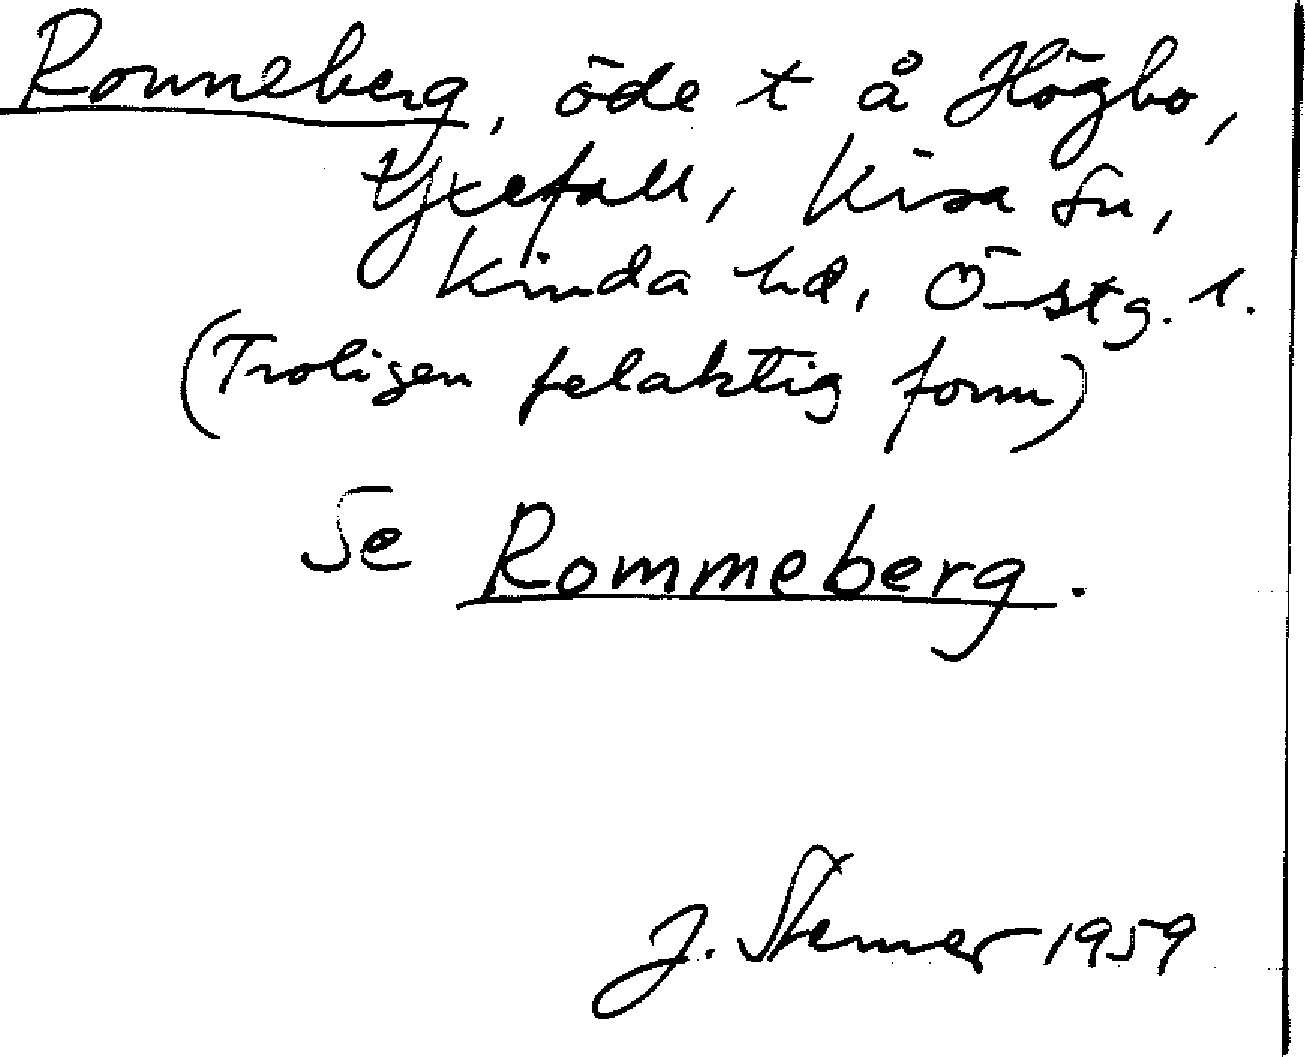 Ronneberg, öde t å Högbo,
Yxefall, Kisa sn,
Kinda hd, Östg. l.
(Troligen felaktig form)
Se Rommeberg.
J. Stemer 1959